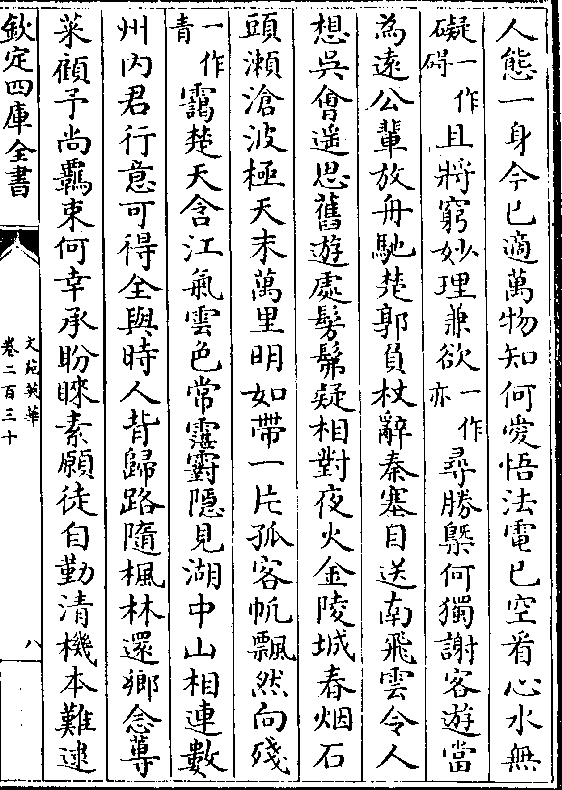 人態一身今已適萬物知何愛悟法電已空看心水無
礙一作碍且將窮妙理兼欲一作亦尋勝槩何獨謝客遊當
為遠公輩放舟馳楚郭負杖辭秦塞目送南飛雲令人
想吳會遥思舊遊處髣髴疑相對夜火金陵城春烟石
頭瀬滄波極天末萬里明如帶一片孤客帆飄然向殘
一作青靄楚天含江氣雲色常霮䨴隠見湖中山相連數
州内君行意可得全與時人背歸路隨楓林還鄉念蓴
菜顧予尚羈束何幸承盼睞素願徒自勤清機本難逮
欽定四庫全書
文苑英華
卷二百三十
八